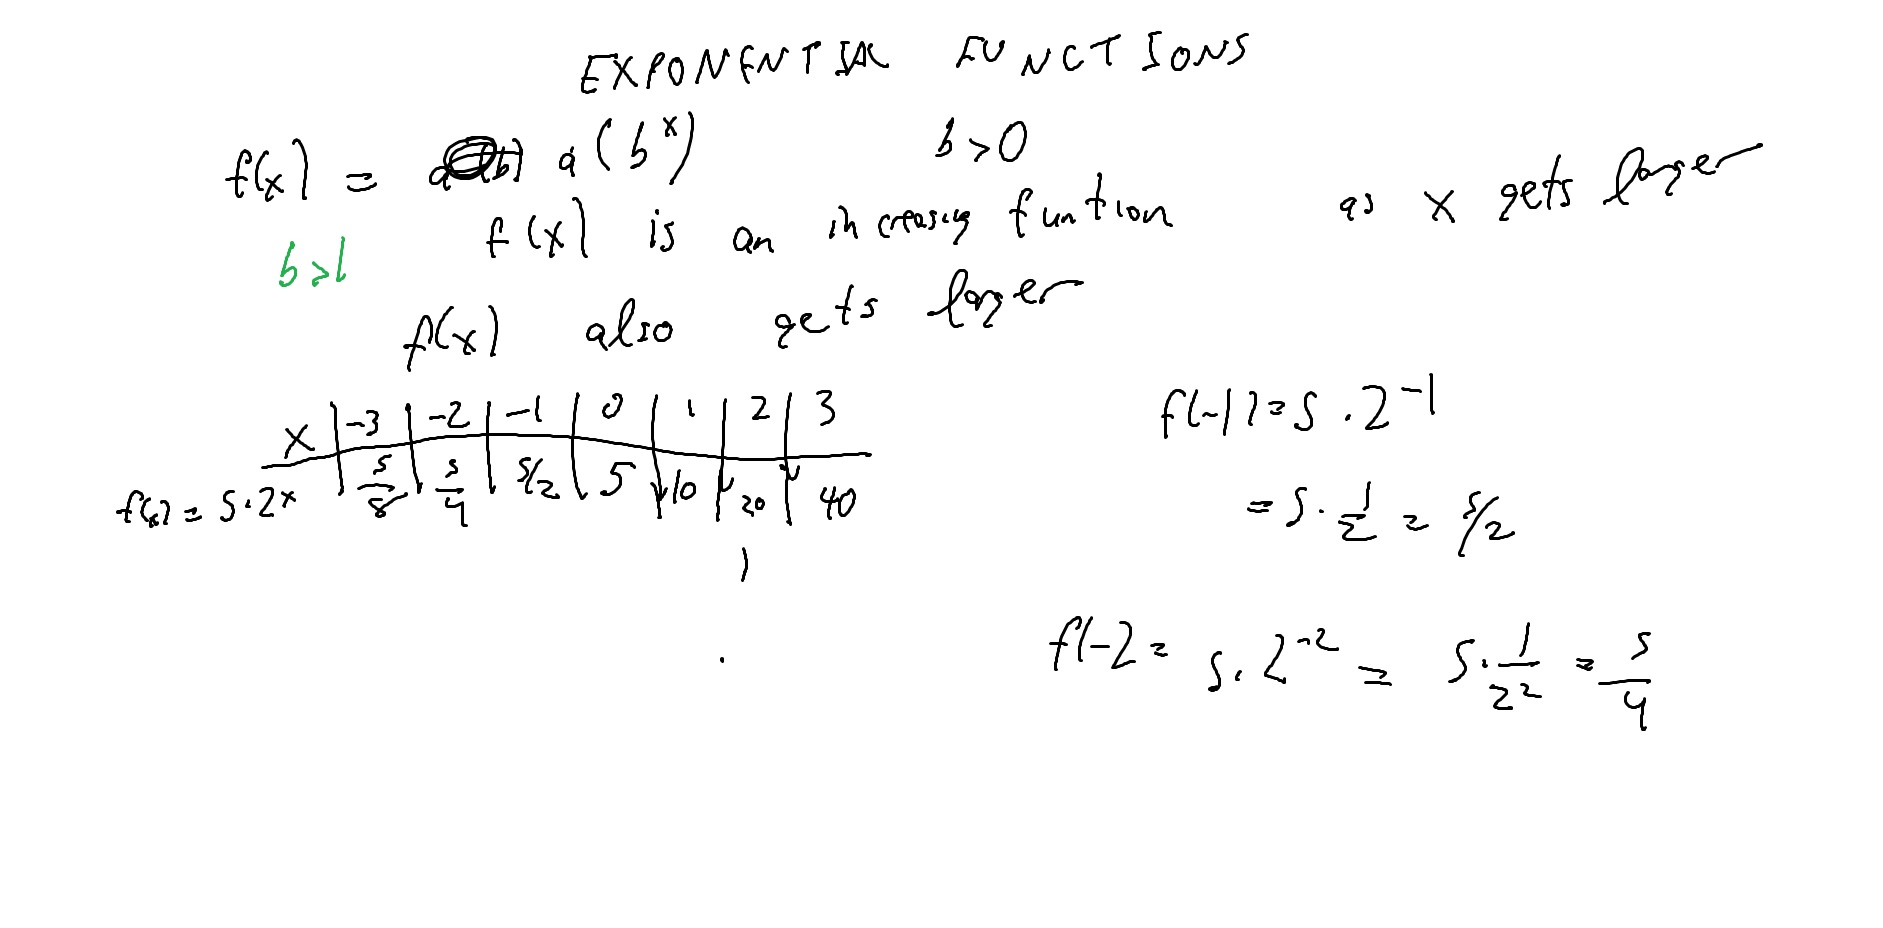 EXPONENTIAL FUNCTIONS
f(x) = a(b^x) b>0
b>1 f(x) is an increasing funtion as x gets larger
f(x) also gets larger
x | -3 | -2 | -1 | 0 | 1 | 2 | 3
f(x) = 5·2^x | 5/8 | 5/4 | 5/2 | 5 | 10 | 20 | 40
f(-1) = 5·2^-1
= 5·1/2 = 5/2
f(-2 = 5·2^-2 = 5·1/2^2 = 5/4